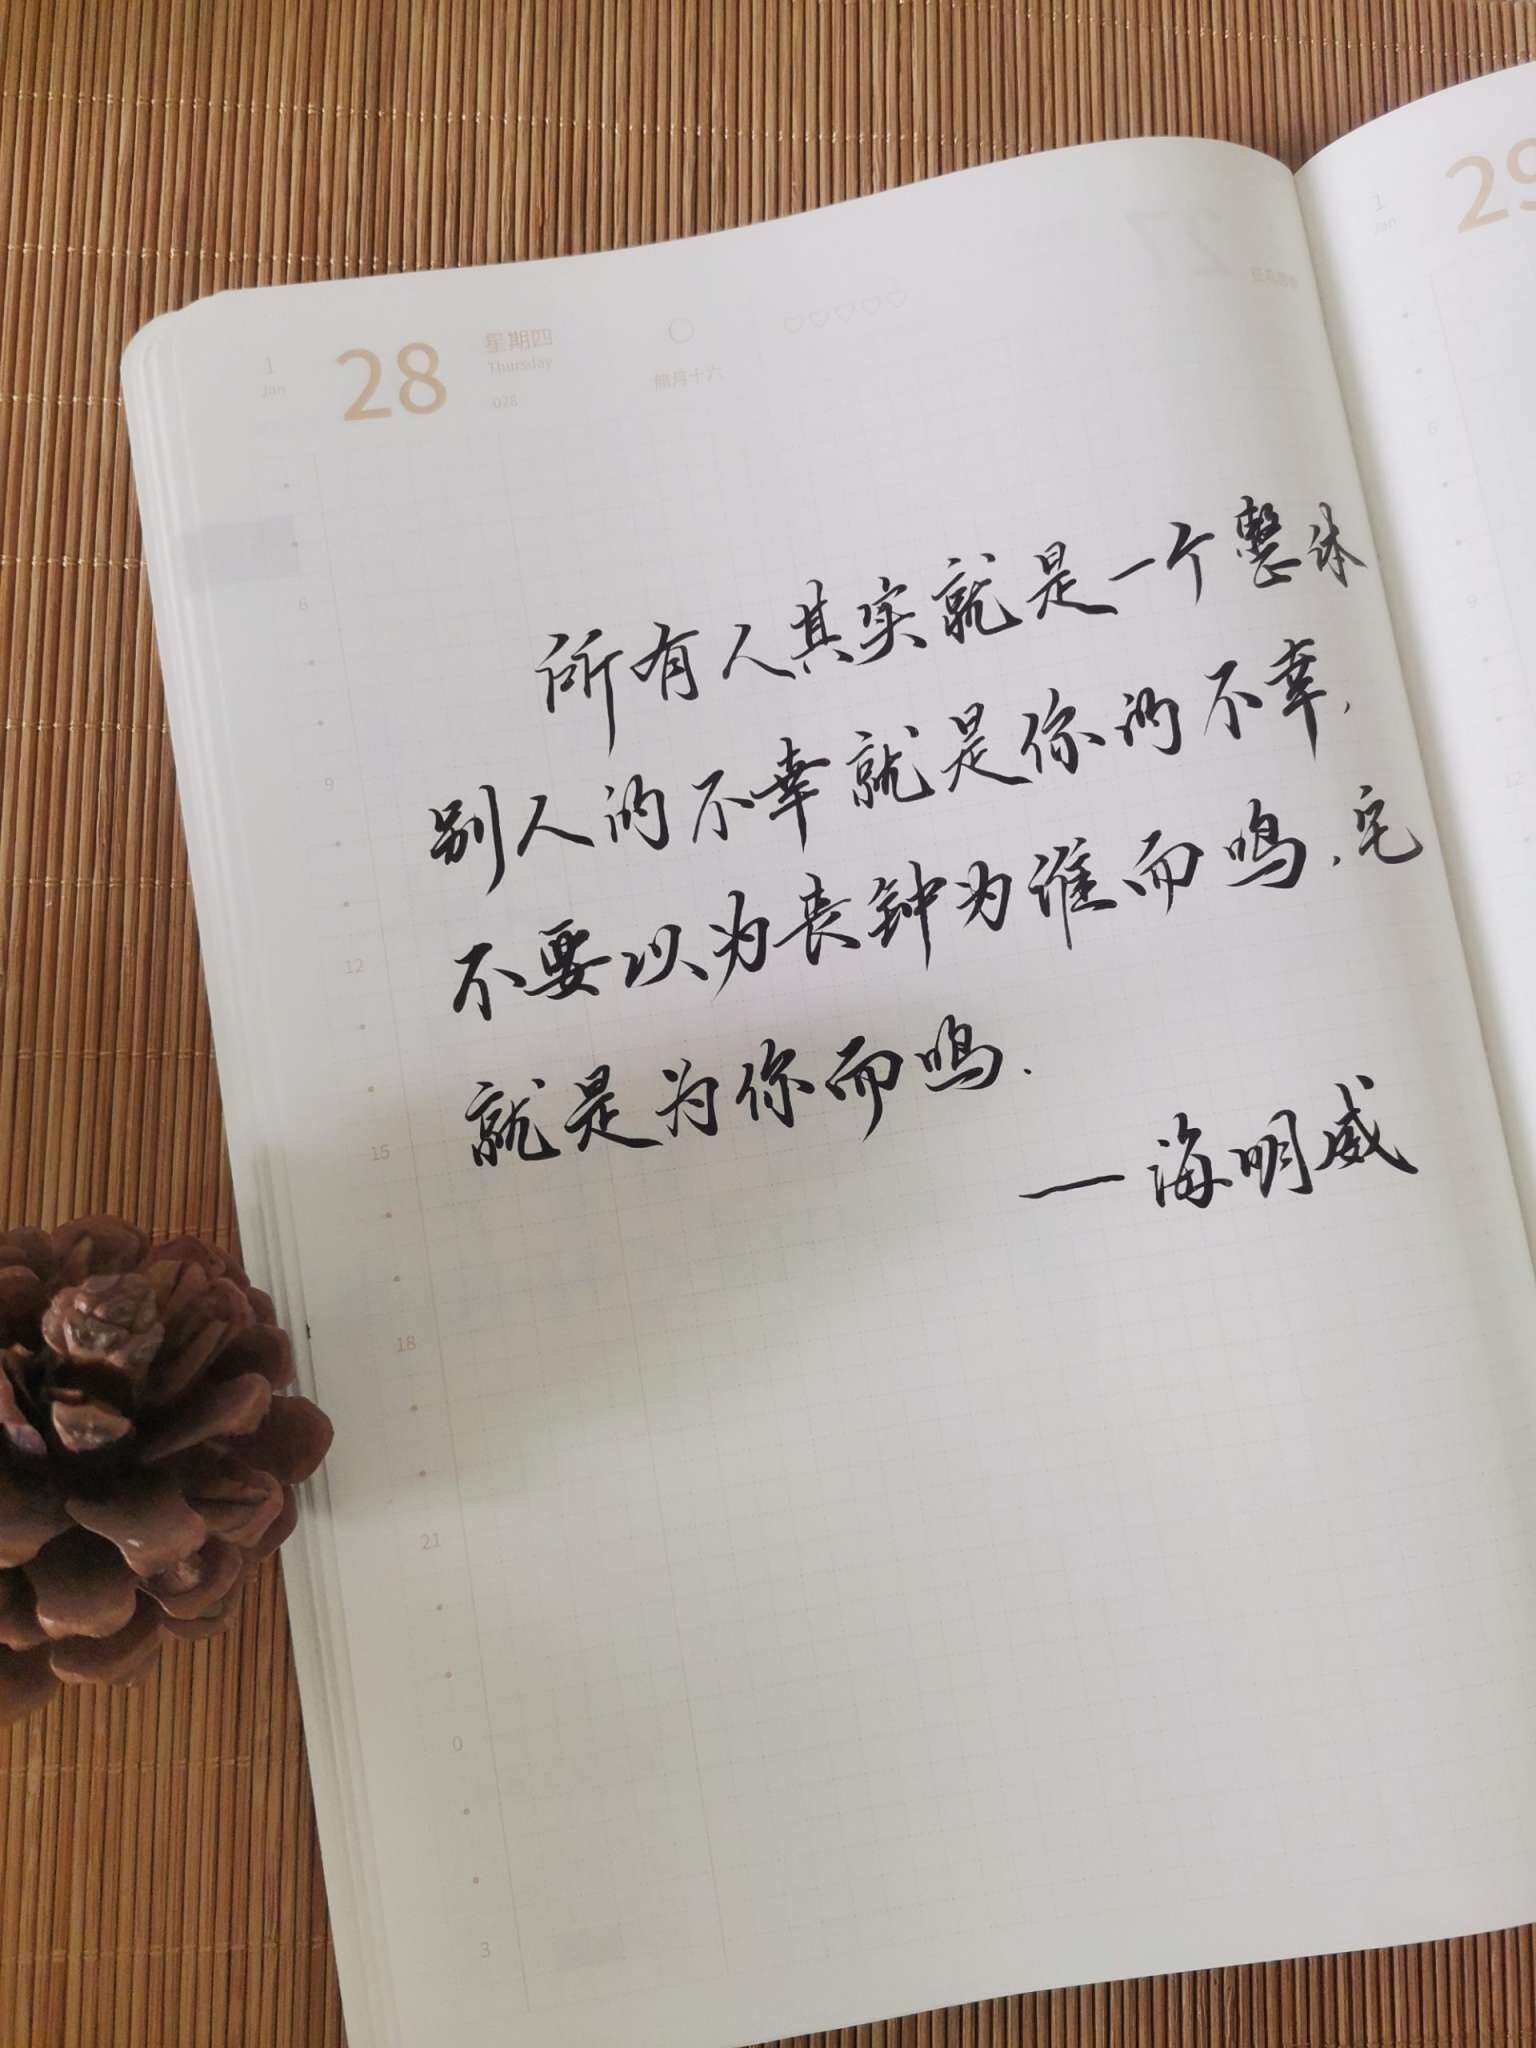 1
Jan
28
星期四
Thursday
028
腊月十六
所有人其实就是一个整体
别人的不幸就是你的不幸.
不要以为丧钟为谁而鸣.它
就是为你而鸣.
—海明威
6
9
12
15
18
21
0
3
1
Jan
29
6
9
12